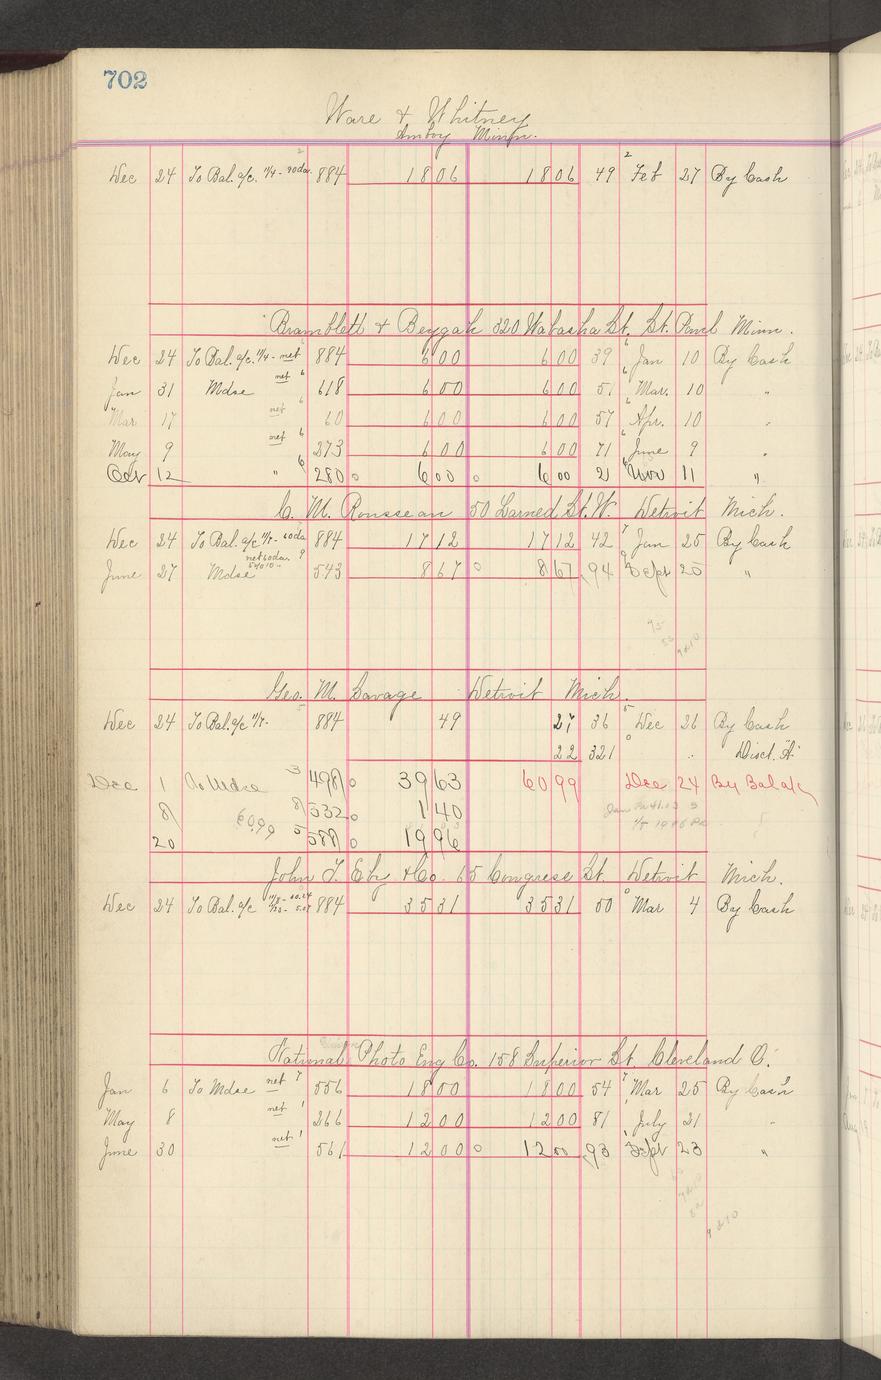 702
Ware & Whitney
Amboy Minn.
Dec 24 To Bal. a/c. 11/4 - 90da. 884 1806 1806 49 Feb 27 By Cash
Bramblett & Beygeh 320 Wabasha St. St. Paul Minn.
Dec 24 To Bal. a/c. 11/4 - net 884 600 600 39 Jan 10 By Cash
Jan 31 Mdse net 6 618 600 600 51 Mar. 10 "
Mar 17 net 6 60 600 600 57 Apr. 10 "
May 9 net 6 273 600 600 71 June 9 "
Oct 12 " 6 280 0 600 0 600 21 Nov 11 "
C. M. Rousseau 50 Larned St. W. Detroit Mich.
Dec 24 To Bal. a/c 11/7 - 60da 884 1712 1712 42 Jan 25 By Cash
June 27 Mdse net 60da. 9 543 867 0 867 94 Sept 25 "
Geo. M. Savage Detroit Mich.
Dec 24 To Bal. a/c 11/7. 884 49 27 36 Dec 26 By Cash
22 321 " Disct. "A"
Dec 1 To Mdse 3 498 0 3963 6099 Dec 24 By Balance
8 8 532 0 140
20 6099 5 588 0 1996
John T. Eby & Co. 65 Congress St. Detroit Mich.
Dec 24 To Bal. a/c 884 3531 3531 50 Mar 4 By Cash
National Photo Eng Co. 158 Superior St. Cleveland O.
Jan 6 To Mdse net 7 556 1800 1800 54 Mar 25 By Cash
May 8 net 1 266 1200 1200 81 July 21 "
June 30 net 1 561 1200 0 1200 93 Sept 23 "